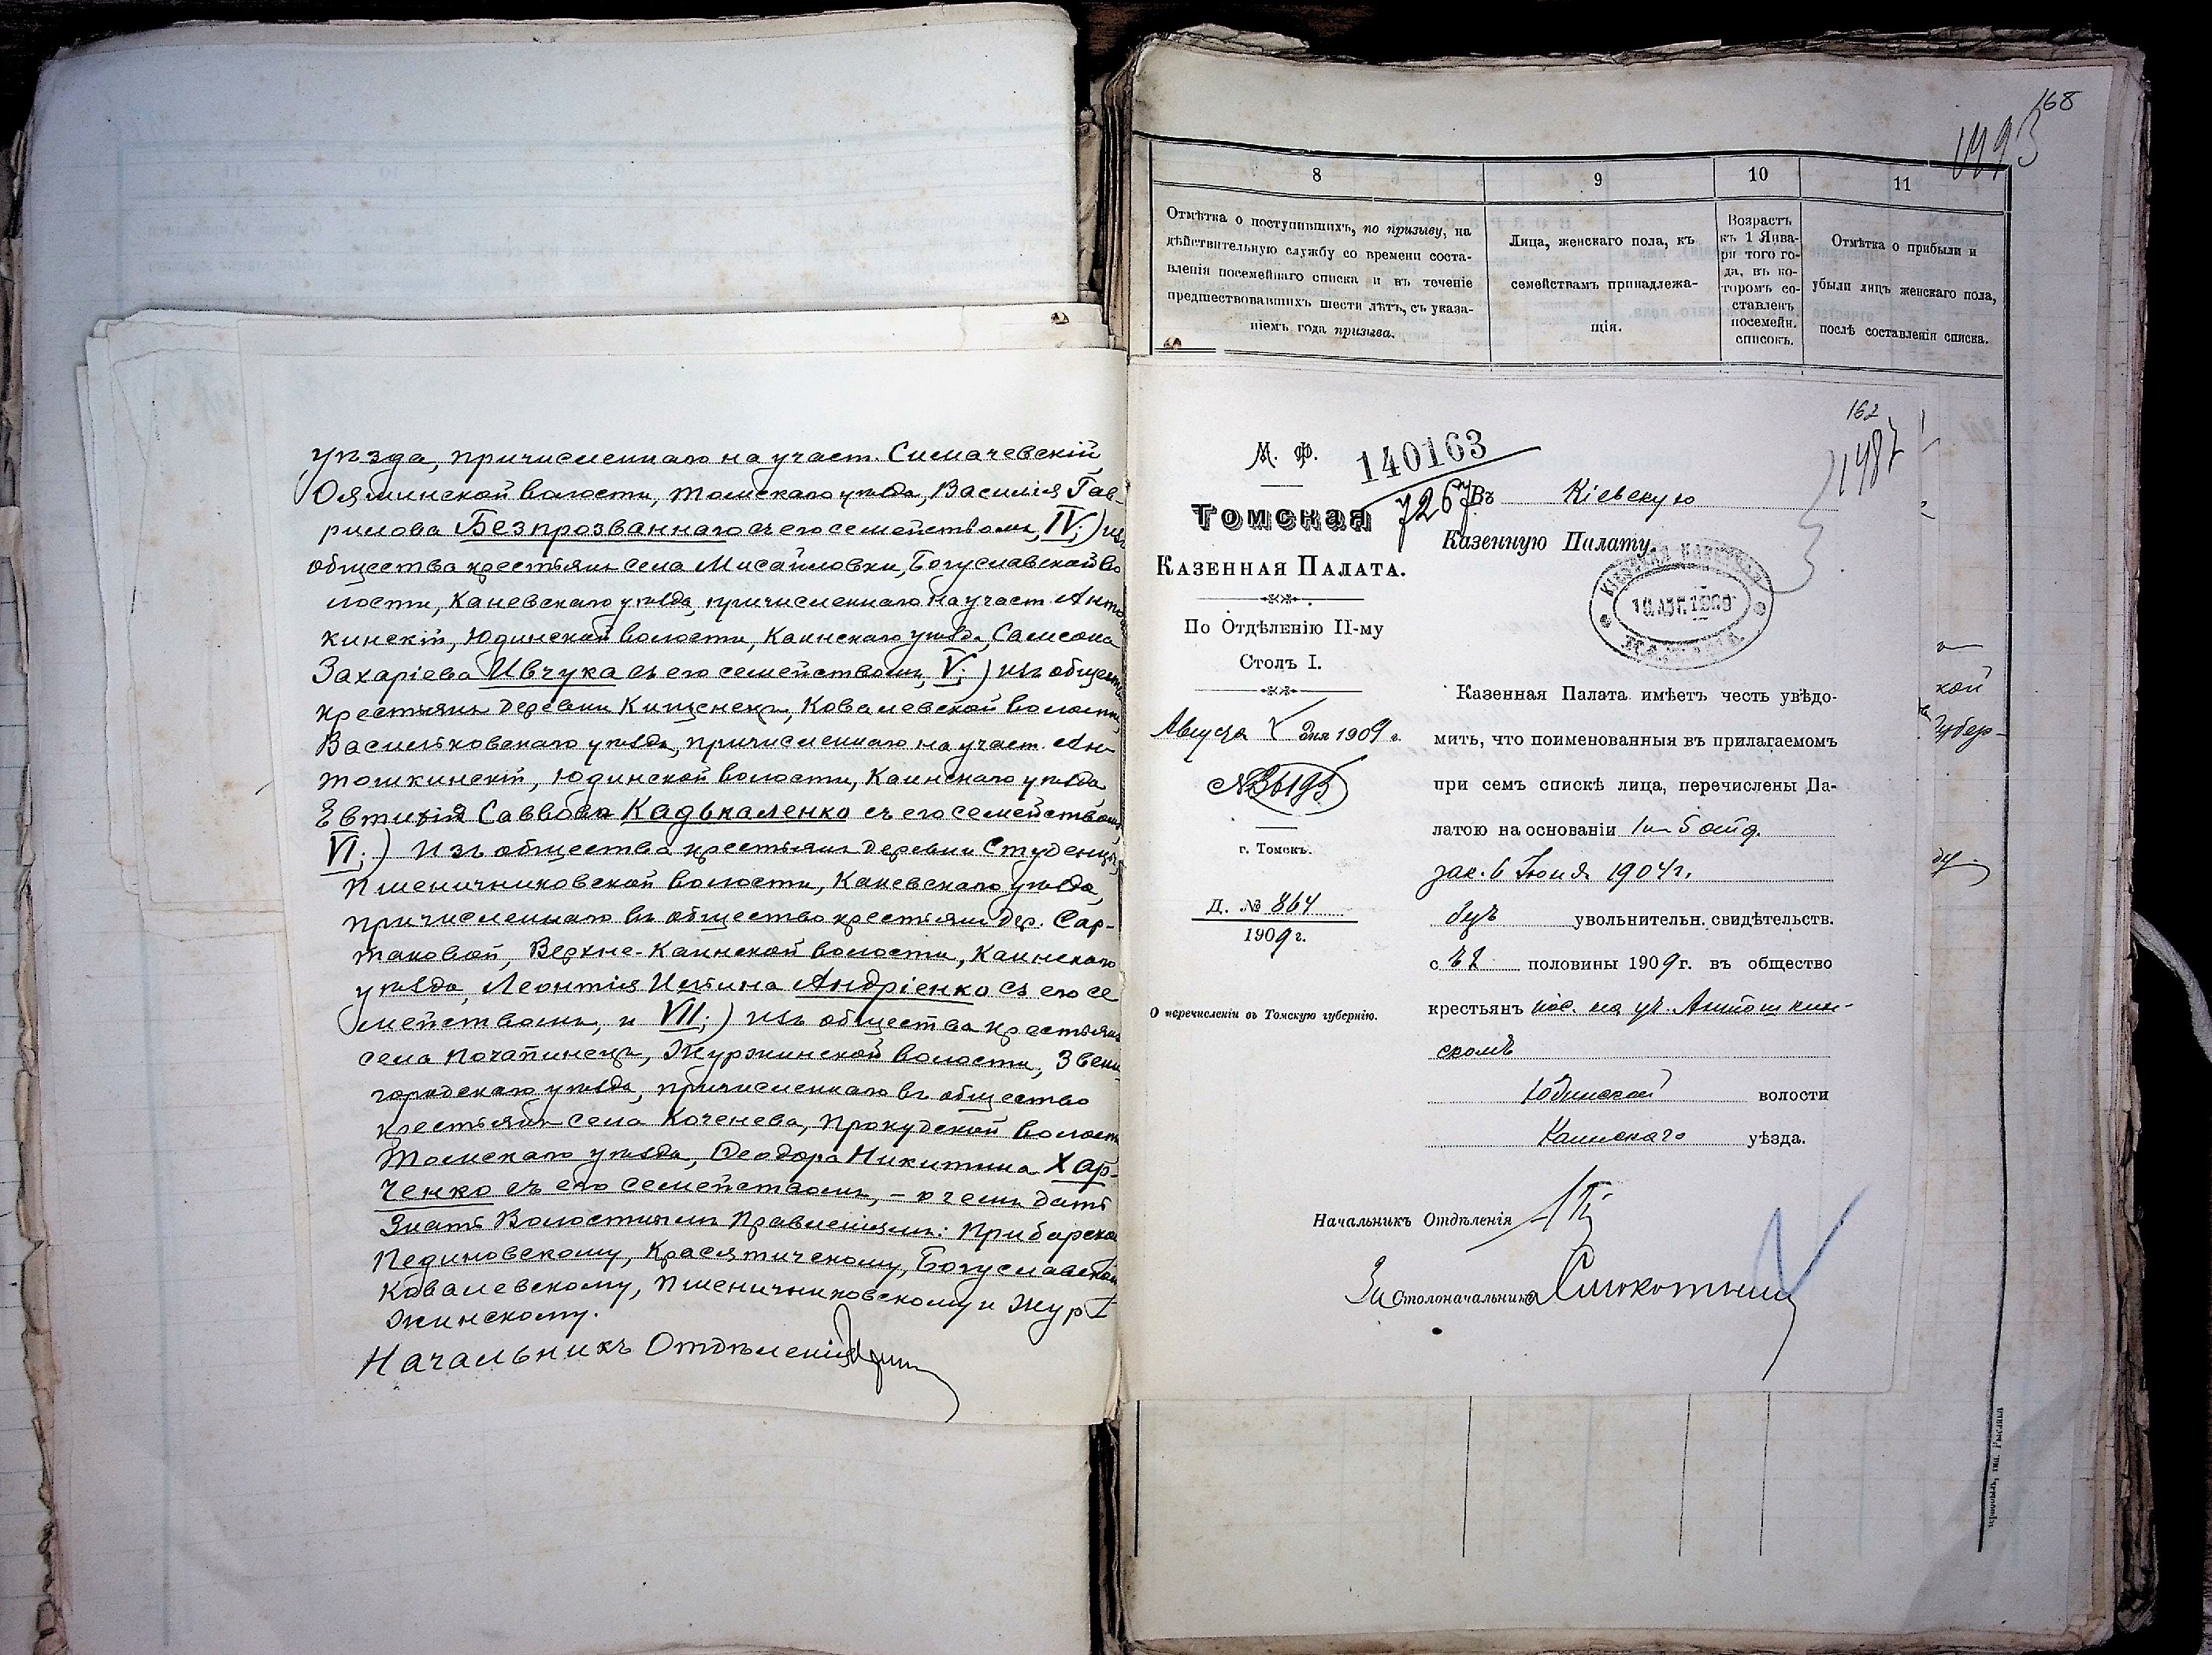 уѣзда, причисленнаго на участ. Симачевскій
Ояшинской волости, Томскаго уѣзда, Василія Гав-
рилова Безпрозваннаго съ его семействомъ, IV;) изъ
общества крестьянъ села Мисайловки, Богуславской во
лости, Каневскаго уѣзда, причисленнаго на участ.
кинскій, Юдинской волости, Каинскаго уѣзда, Самсона
Захаріева Ивчука съ его семействомъ, V;) изъ
крестьянъ деревни Кищенецъ, Ковалевской волости,
Васильковскаго уѣзда, причисленнаго на участ. Ан-
тошкинскій, Юдинской волости, Каинскаго уѣзда
Евтихія Саввова Кадькаленко съ его семействомъ,
VI;) Изъ общества крестьянъ деревни
Пшеничниковской волости, Каневскаго уѣзда,
причисленнаго въ общество крестьянъ дер. Сар-
таковой, Верхне-Каинской волости, Каинскаго
уѣзда, Леонтія Ильина Андріенко съ его се
мействомъ, и VII;) изъ общества крестьянъ
села Почапинецъ, Журжинской волости, Звени-
городскаго уѣзда, причисленнаго въ общество
крестьянъ села Коченева, Прокудской волости
Томскаго уѣзда, Ѳеодора Никитина Хар-
ченко съ его семействомъ, – о чемъ дать
знать Волостнымъ Правленіямъ:
Пединовскому, Красятичскому,
Ковалевскому, Пшеничниковскому и Жур
жинскому.
Начальникъ Отдѣленія
168
1493
8
9
10
11
Отмѣтка о поступившихъ, по призыву, на
дѣйствительную службу со времени соста-
вленія посемейнаго списка и въ теченіе
предшествовавшихъ шести лѣтъ, съ указа-
ніемъ года призыва.
Лица, женскаго пола, къ
семействамъ принадлежа-
щія.
Возрастъ
къ 1 Янва-
ря того го-
да, въ ко-
торомъ со-
ставленъ
посемейн.
списокъ.
Отмѣтка о прибыли и
убыли лицъ женскаго пола,
послѣ составленія списка.
162
1487
М. Ф.
140163
7267
Томская
Казенная Палата.
По Отдѣленію II-му
Столъ I.
Августа дня 1909 г.
№
г. Томскъ.
Д. № 864
1909 г.
О перечисленіи въ Томскую губернію.
Въ Кіевскую
Казенную Палату.
Казенная Палата имѣетъ честь увѣдо-
мить, что поименованныя въ прилагаемомъ
при семъ спискѣ лица, перечислены Па-
латою на основаніи
зак. 6 Іюня 1904 г.
безъ увольнительн. свидѣтельств.
с половины 1909 г. въ общество
крестьянъ пос. на уч. Антошкин-
скомъ
Юдинской волости
Каинскаго уѣзда.
Начальникъ Отдѣленія
За Столоначальника
кой
Губер-